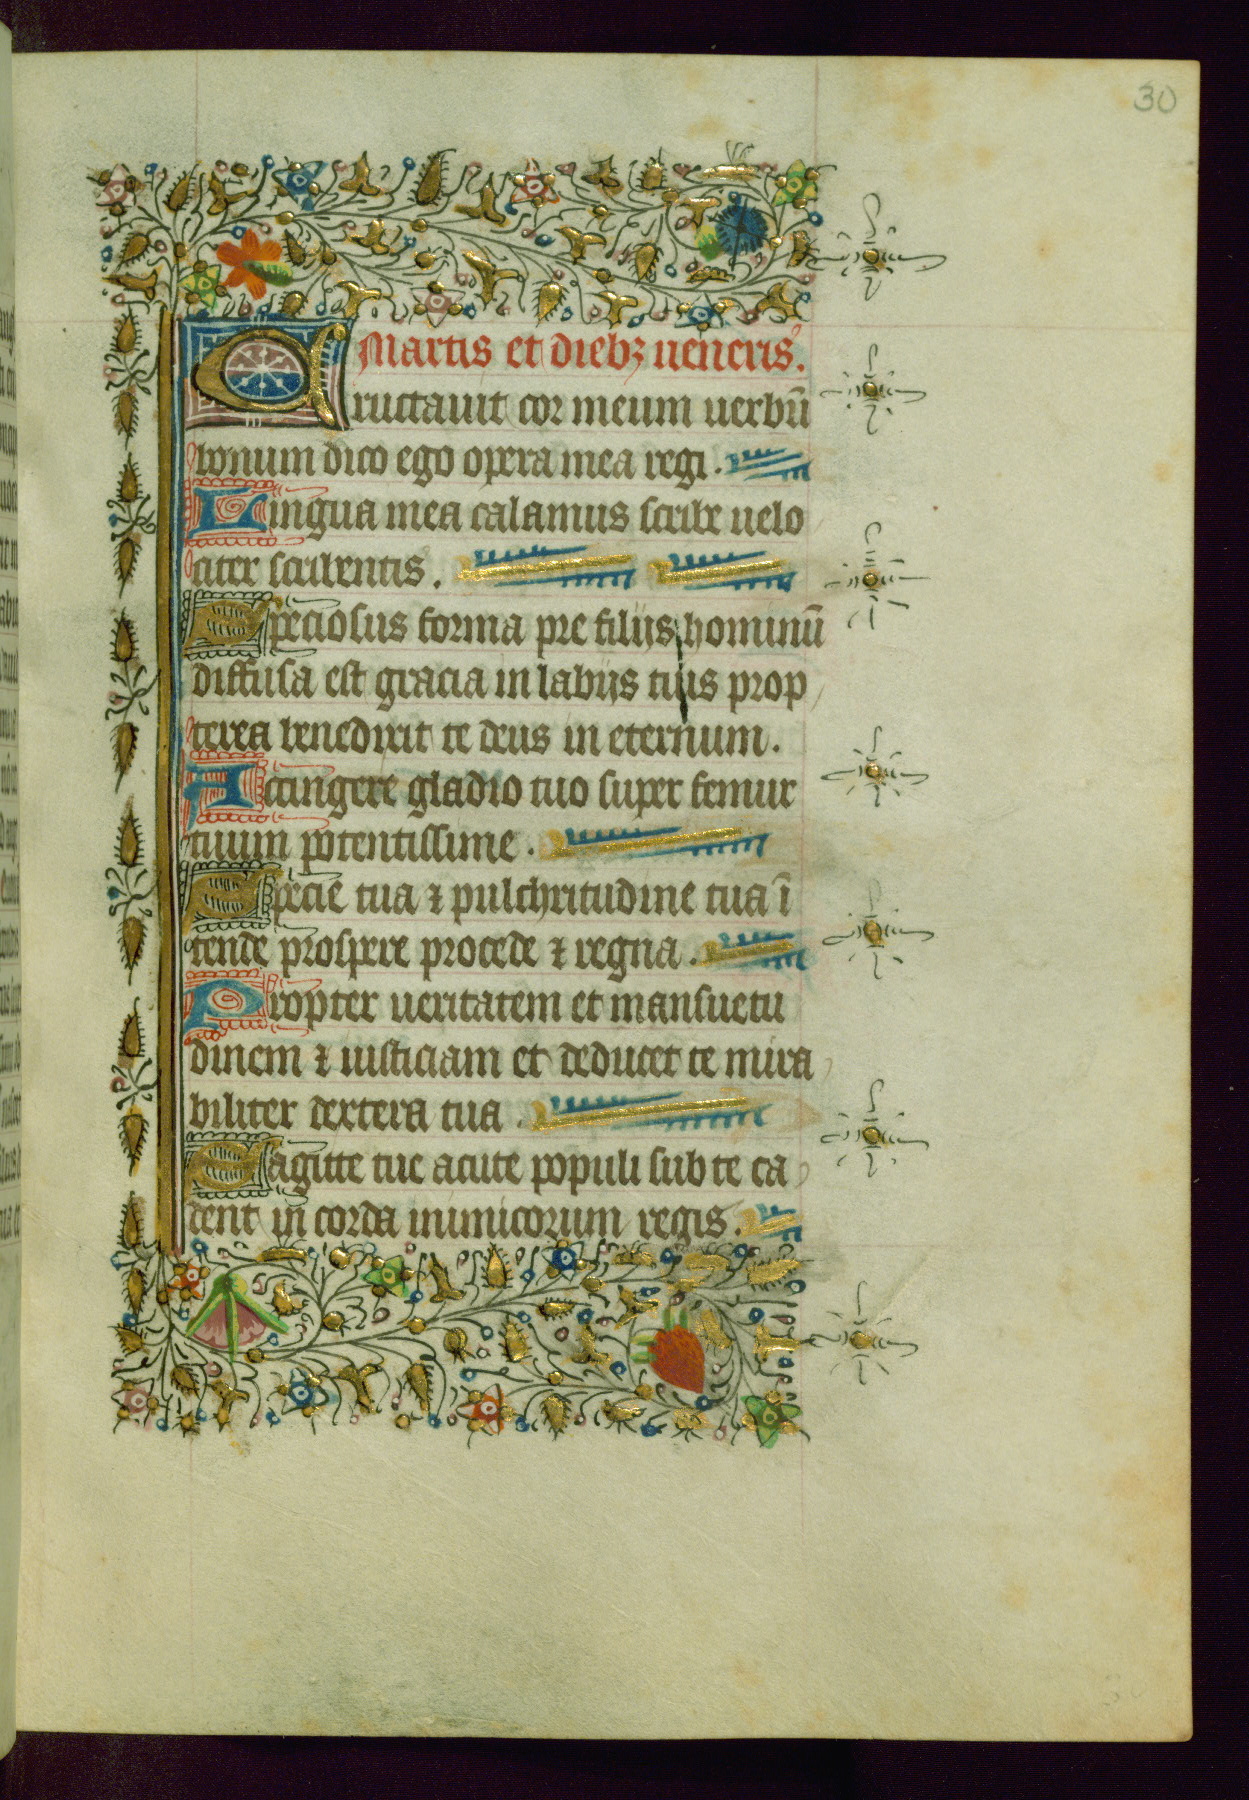 30
Martis et diebꝫ ueneris.
Eructauit cor meum uerbū
bonum dico ego opera mea regi.
Lingua mea calamus scribe uelo
citer scribentis.
Speciosus forma pre filijs hominū
diffusa est gracia in labijs tuis prop
terea benedixit te deus in eternum.
Accingere gladio tuo super femur
tuum potentissime.
Specie tua ⁊ pulchritudine tua ī
tende prospere procede ⁊ regna.
Propter ueritatem et mansuetu
dinem ⁊ iusticiam et deducet te mira
biliter dextera tua.
Sagitte tue acute populi sub te ca
dent in corda inimicorum regis.